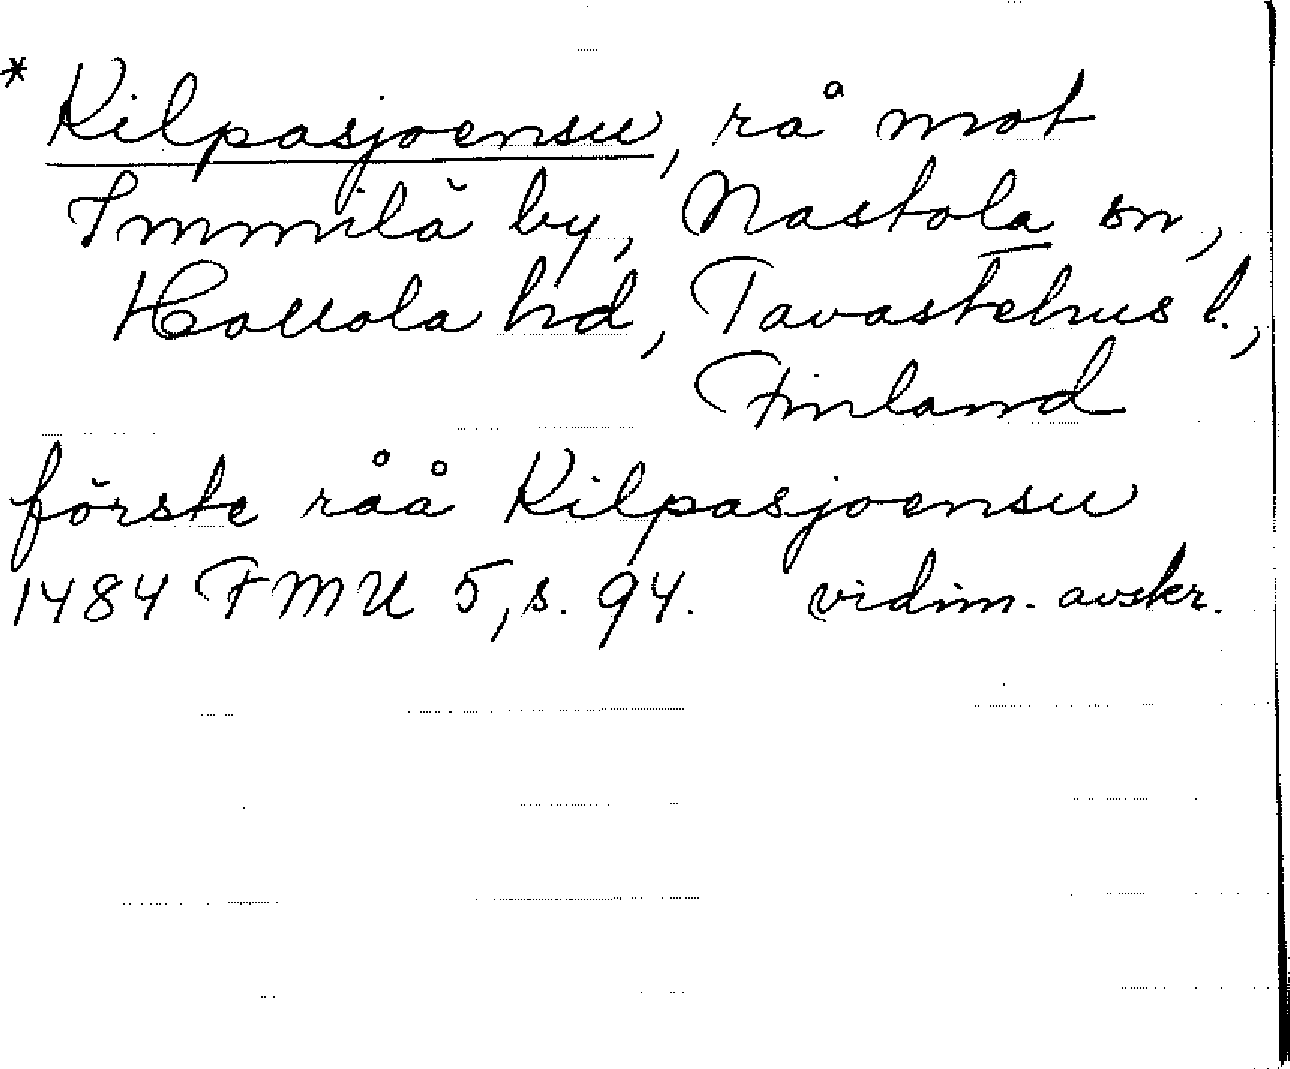 * Kilpasjoensu, rå mot
Immilä by, Nastola sn,
Hollola hd, Tavastehus l.,
Finland
förste råå Kilpasjoensu
1484 FMU 5, s. 94. vidim. avskr.